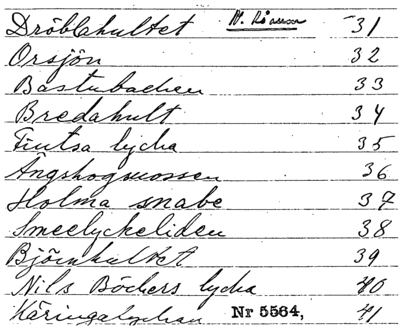 Dröblahultet 31
Orsjön 32
Bastubacken 33
Bredahult 34
lycka 35
Ängshagsmossen 36
Holma snabe 37
Smeelyckeliden 38
Björnhultet 39
Nils Böckers lycka 40
Käringalyckan Nr 5564, 41